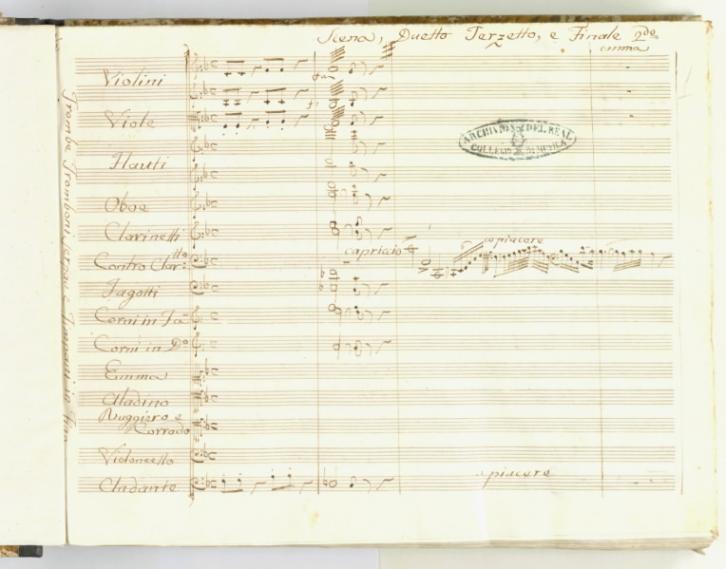 Scena, Duetto Terzetto, e Finale 2do
Violini
Viole
Flauti
Oboe
Clarinetti
Contro Clartto
a piacere
capriccio
Fagotti
Corni in Fa
Corni in Do
Emma
Aladino
Ruggiero e
Corrado
Violoncello
a piacere
ARCHIVIO DEL REAL
COLLEGIO DI MUSICA
Trombe Tromboni